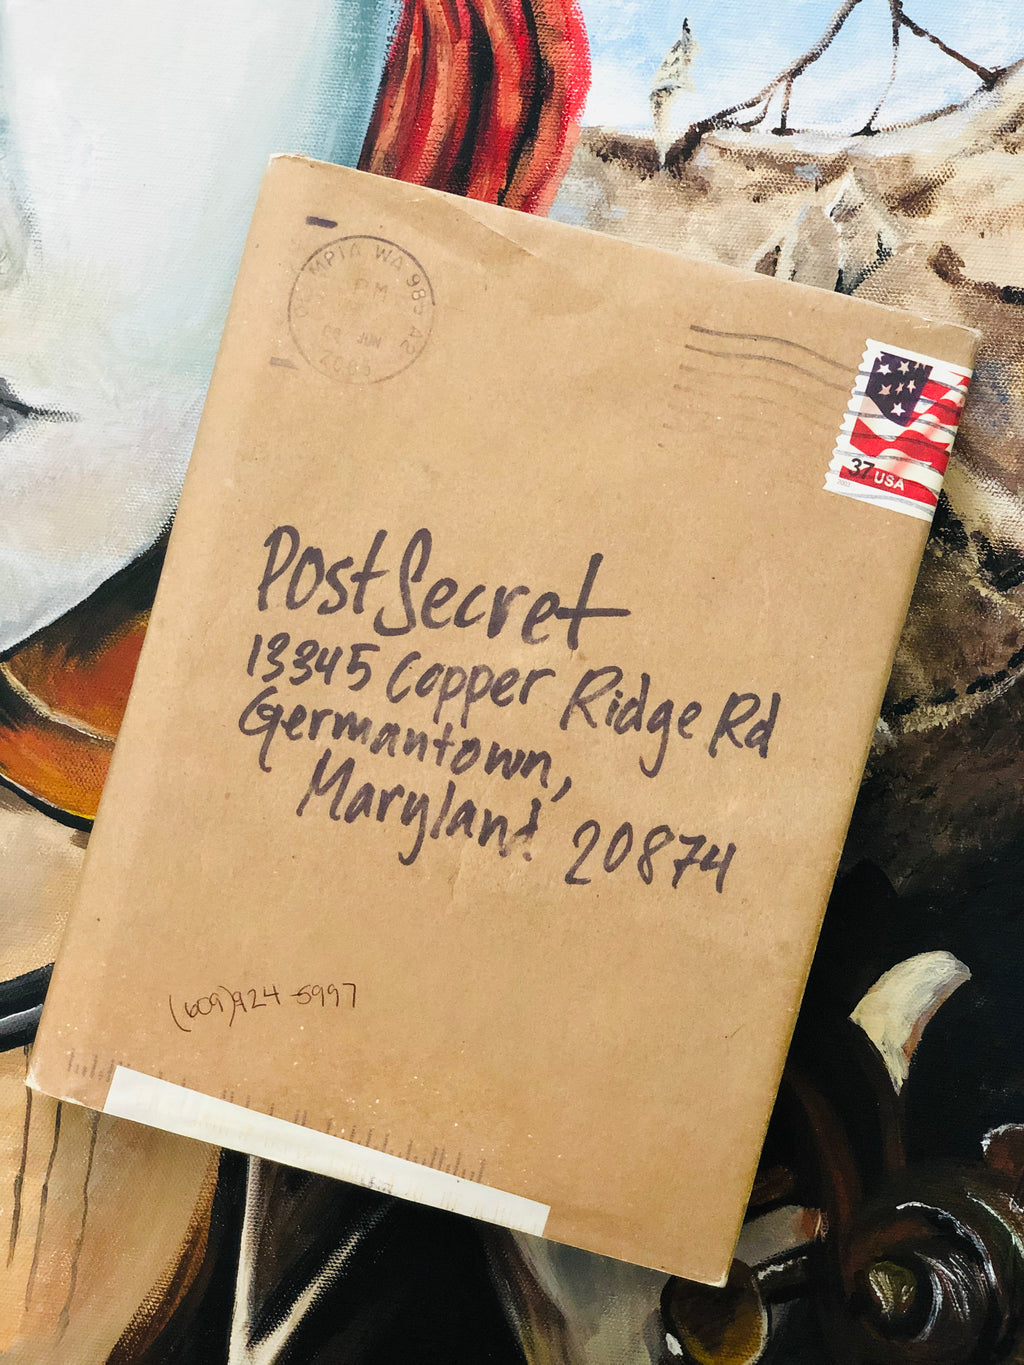 OLYMPIA WA 985 A2
PM
08 JUN
2005
37 USA
2003
PostSecret
13345 Copper Ridge Rd
Germantown,
Maryland 20874
(609)924-5997